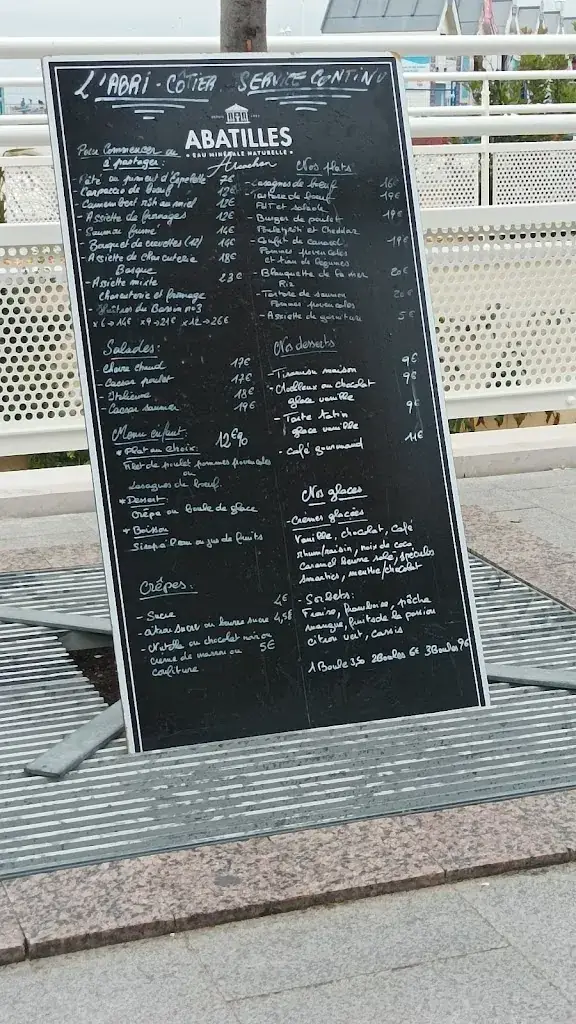 L'ABRI-CÔTIER SERVICE CONTINU
DEPUIS
ABATILLES
• EAU MINÉRALE NATURELLE •
Arcachon
Pour Commencer ou
à partager:
- Pâté au piment d'Espelette 7€
- Carpaccio de bœuf 12€
- Camembert rôti au miel 12€
- Assiette de fromages 12€
- Saumon fumé 14€
- Bouquet de crevettes (12) 14€
- Assiette de Charcuterie 18€
Basque
- Assiette mixte 23€
Charcuterie et fromage
- Huîtres du Bassin n°3
x6→14€ x9→21€ x12→26€
Salades:
- Chèvre chaud 17€
- Caesar poulet 17€
- Italienne 18€
- Caesar saumon 19€
Menu enfant: 12€90
* Plat au choix:
Filet de poulet pommes provençales
ou
Lasagnes de bœuf
* Dessert
Crêpe ou Boule de glace
* Boisson
Sirop à l'eau ou jus de fruits
Crêpes:
- Sucre 4€
- citron sucre ou beurre sucre 4,5€
- Nutella ou chocolat noir ou 5€
crème de marron ou
confiture
Nos plats
- Lasagnes de bœuf 16€
- Tartare de bœuf 19€
Frit et salade
- Burger de poulet 19€
Poulet rôti et Cheddar
- Confit de canard 19€
Pommes provençales
et tian de légumes
- Blanquette de la mer 20€
Riz
- Tartare de saumon 20€
Pommes provençales
- Assiette de garniture 5€
Nos desserts
- Tiramisu maison 9€
- Moelleux au chocolat 9€
glace vanille
- Tarte tatin 9€
glace vanille
- Café gourmand 11€
Nos glaces
- Crèmes glacées
Vanille, chocolat, café
rhum/raisin, noix de coco
Caramel beurre salé, spéculos
smarties, menthe/chocolat
- Sorbets:
Fraise, framboise, pêche
mangue, fruits de la passion
citron vert, cassis
1 Boule 3,50 2 Boules 6€ 3 Boules 9€